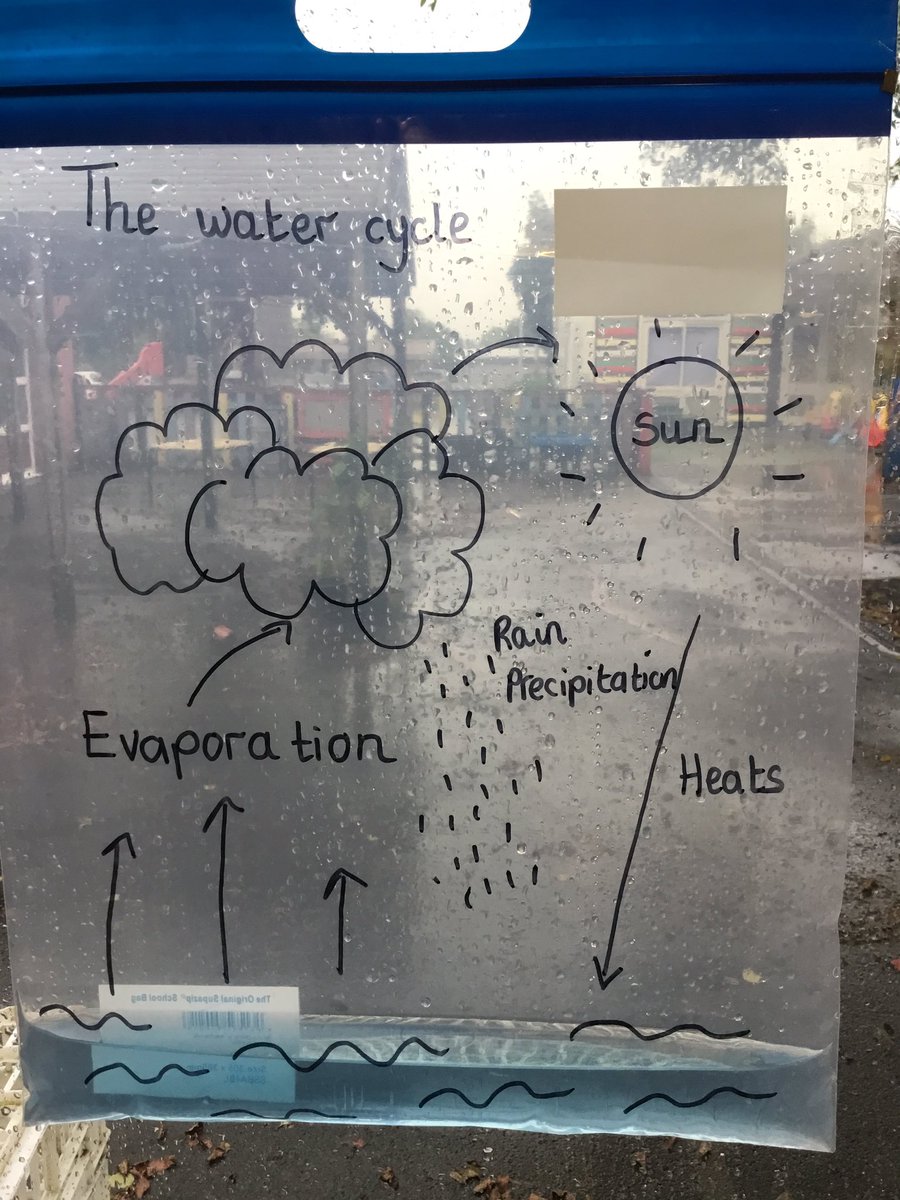 The water cycle
Sun
Rain
Precipitation
Evaporation
Heats
The Original Supazip® School Bag